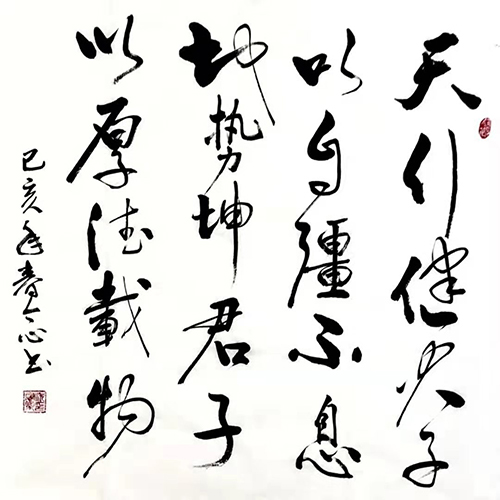 天行健君子
以自彊不息
地势坤君子
以厚德載物
己亥年春心书